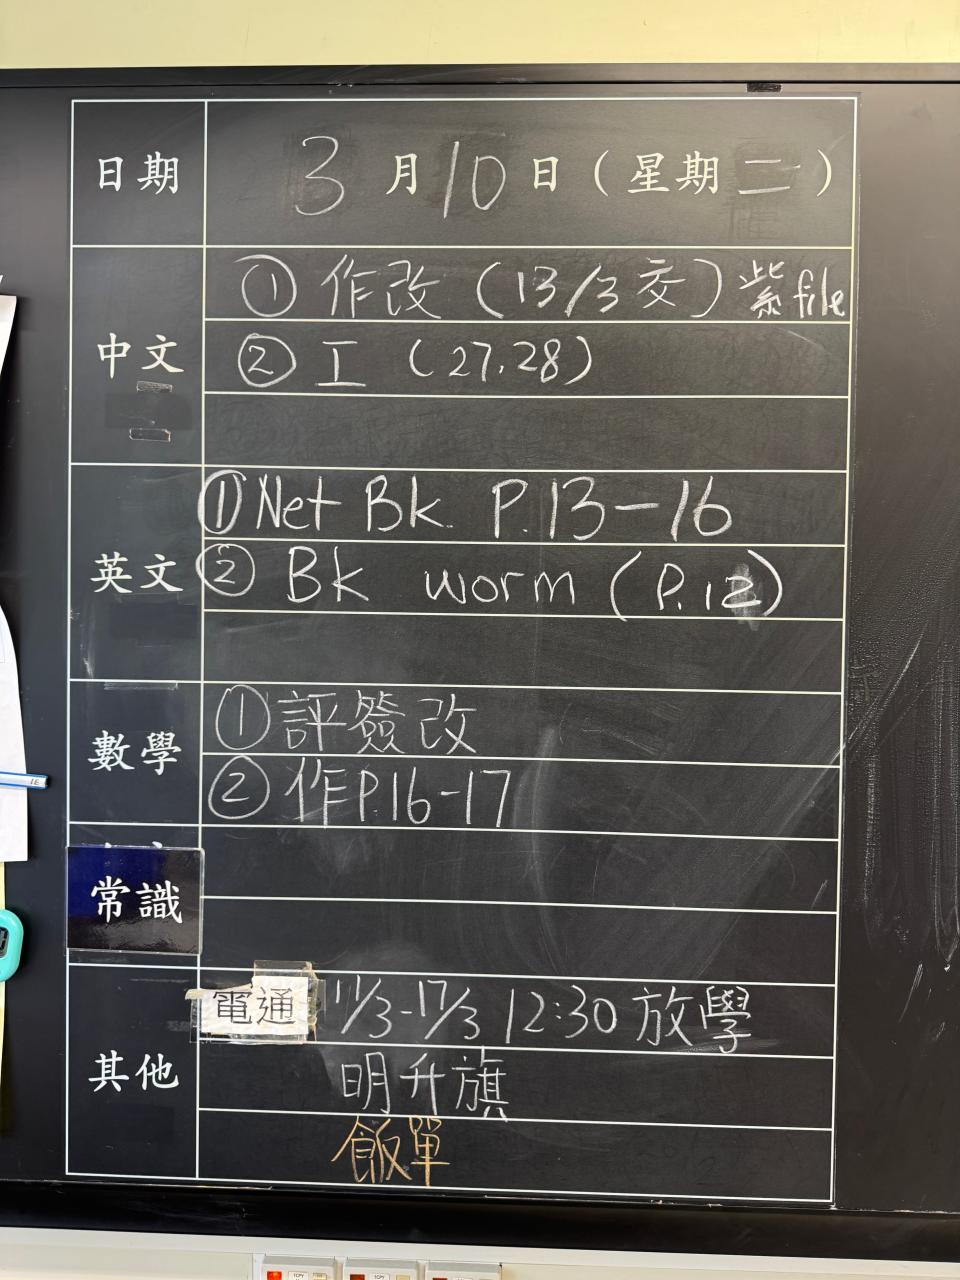 日期 3月10日（星期二）
中文
① 作改（13/3交）紫file
② 工（27,28）
英文
① Net Bk P.13-16
② Bk worm (P.12)
數學
① 評簽改
② 作P.16-17
常識
其他
電通 11/3-17/3 12:30放學
明升旗
飯單